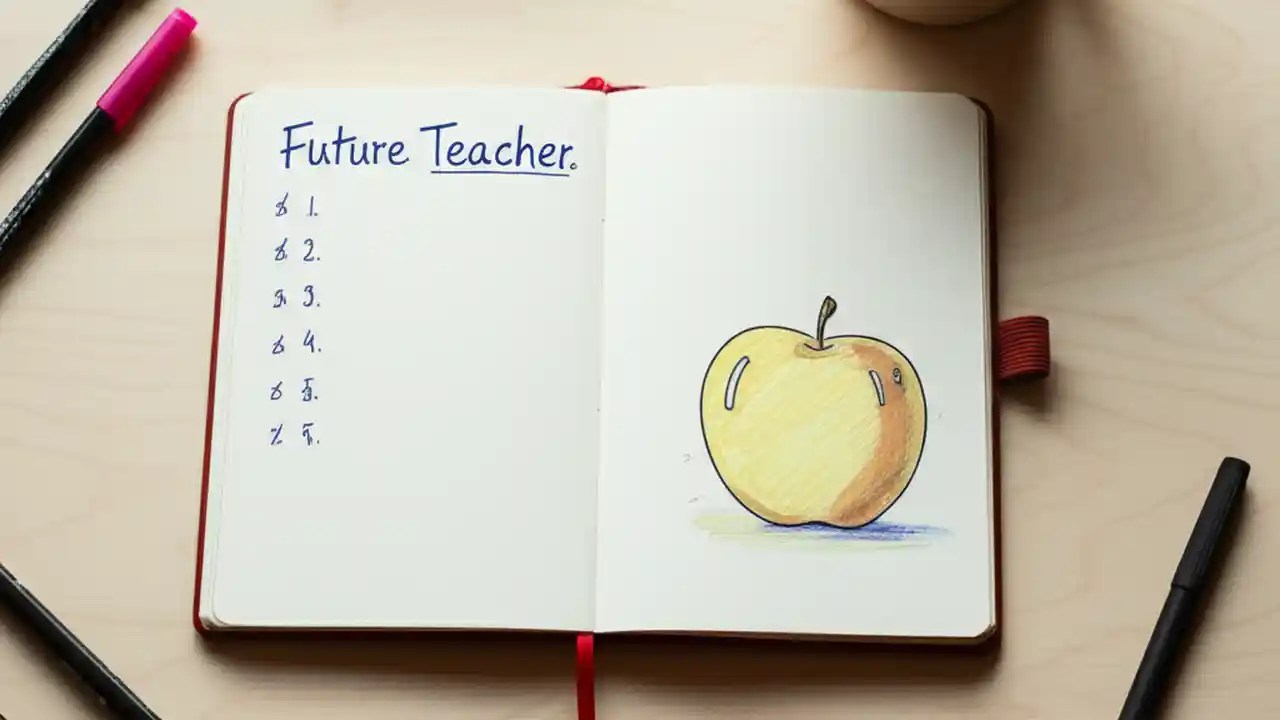 Future Teacher.
1.
2.
3.
4.
5.